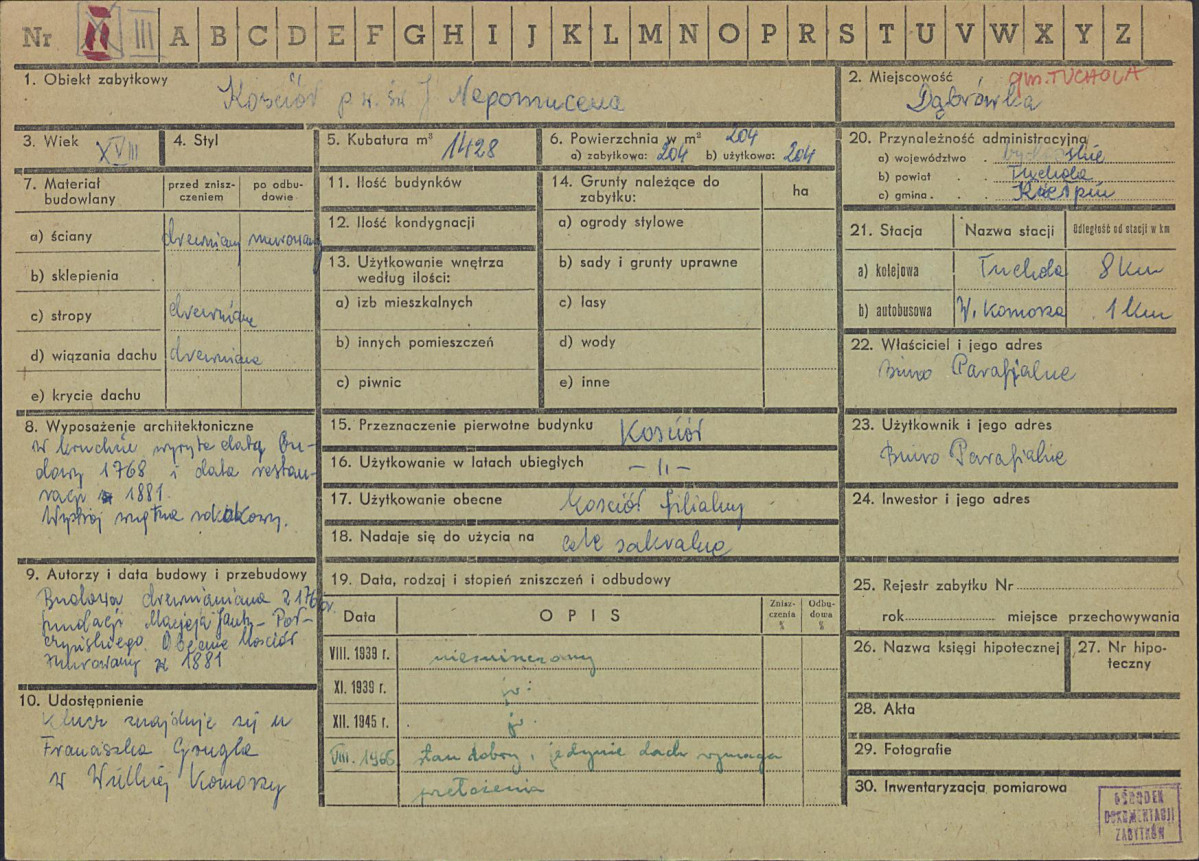 Nr II III A B C D E F G H I J K L M N O P R S T U V W X Y Z
1. Obiekt zabytkowy
Kościół p.w. św J Nepomucena
2. Miejscowość gm. TUCHOLA
Dąbrówka
3. Wiek XVIII
4. Styl
5. Kubatura m³ 1428
6. Powierzchnia w m² 204
a) zabytkowa: 204 b) użytkowa: 204
20. Przynależność administracyjna
a) województwo . bydgoskie
b) powiat . . Tuchola
c) gmina . . Kiełpin
7. Materiał budowlany
przed zniszczeniem
po odbudowie
a) ściany drewniany murowany
b) sklepienia
c) stropy drewniane
d) wiązania dachu drewniane
e) krycie dachu
8. Wyposażenie architektoniczne
w kruchcie wyryta datą bu-
dowy 1768 i data restau-
racji 1881.
Wystrój wnętrza rokokowy.
9. Autorzy i data budowy i przebudowy
Budowa drewnianiana z 176 r.
fundacji Macieja Janty-Poł-
czyńskiego. Obecnie kościół
murowany z 1881
10. Udostępnienie
Klucz znajduje się u
Franciszka Grugla
w Wielkiej Komorzy
11. Ilość budynków
12. Ilość kondygnacji
13. Użytkowanie wnętrza
według ilości:
a) izb mieszkalnych
b) innych pomieszczeń
c) piwnic
14. Grunty należące do
zabytku:
ha
a) ogrody stylowe
b) sady i grunty uprawne
c) lasy
d) wody
e) inne
15. Przeznaczenie pierwotne budynku Kościół
16. Użytkowanie w latach ubiegłych – II –
17. Użytkowanie obecne Kościół filialny
18. Nadaje się do użycia na cele sakralne
19. Data, rodzaj i stopień zniszczeń i odbudowy
Data
OPIS
Zniszczenia %
Odbudowa %
VIII. 1939 r. niezniszczony
XI. 1939 r. jw.
XII. 1945 r. jw.
VIII. 1966 stan dobry, jedynie dach wymaga
przełożenia
21. Stacja
Nazwa stacji
Odległość od stacji w km
a) kolejowa Tuchola 8 km
b) autobusowa W. Komorza 1 km
22. Właściciel i jego adres
Biuro Parafjalne
23. Użytkownik i jego adres
Biuro Parafialne
24. Inwestor i jego adres
25. Rejestr zabytku Nr
rok miejsce przechowywania
26. Nazwa księgi hipotecznej
27. Nr hipo-
teczny
28. Akta
29. Fotografie
30. Inwentaryzacja pomiarowa
OŚRODEK
DOKUMENTACJI
ZABYTKÓW